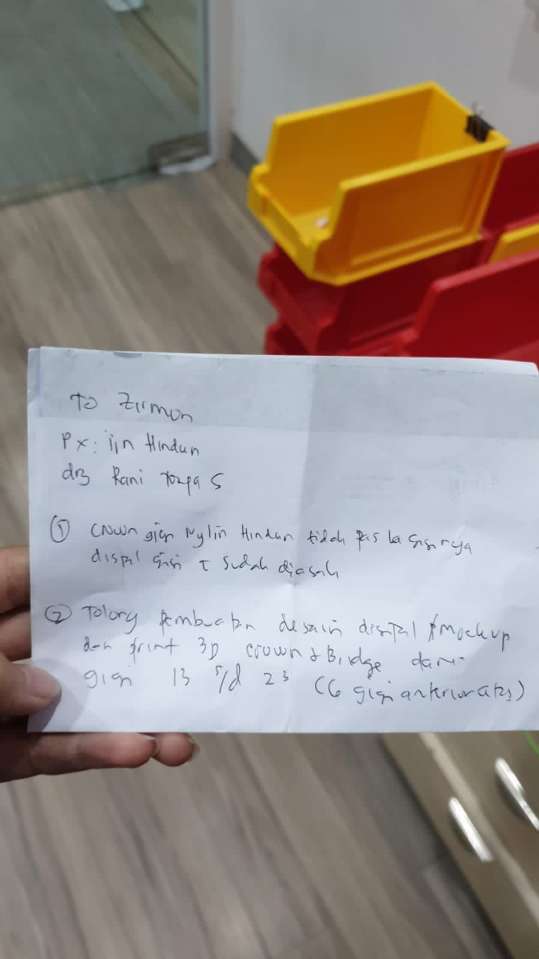 To Zirmon
Px: Iin Hindun
drg Rani S
① crown gigi Nylin Hindun tidak pas
distal sisi sudah diasah
② Tolong pembuatan desain digital /mockup
dan print 3D crown & Bridge dari
gigi 13 s/d 23 (6 gigi anterior atas)